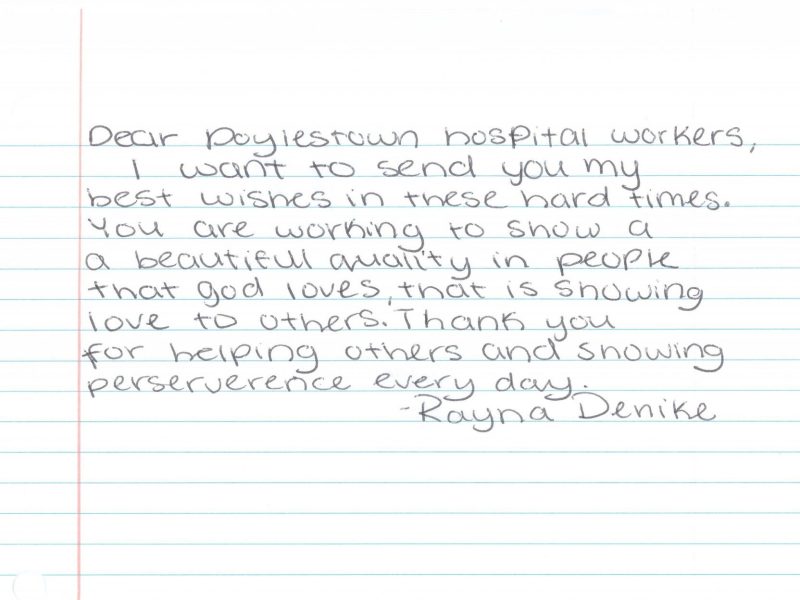 Dear Doylestown hospital workers,
I want to send you my
best wishes in these hard times.
You are working to show a
a beautiful quality in people
that god loves, that is showing
love to others. Thank you
for helping others and showing
perserverence every day.
-Rayna Denike